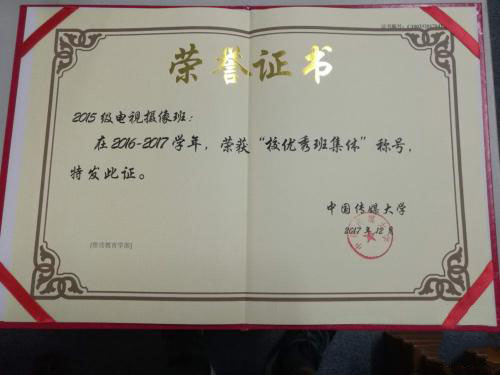 荣誉证书
2015级电视摄像班：
在2016-2017学年，荣获“校优秀班集体”称号，
特发此证。
中国传媒大学
2017年12月